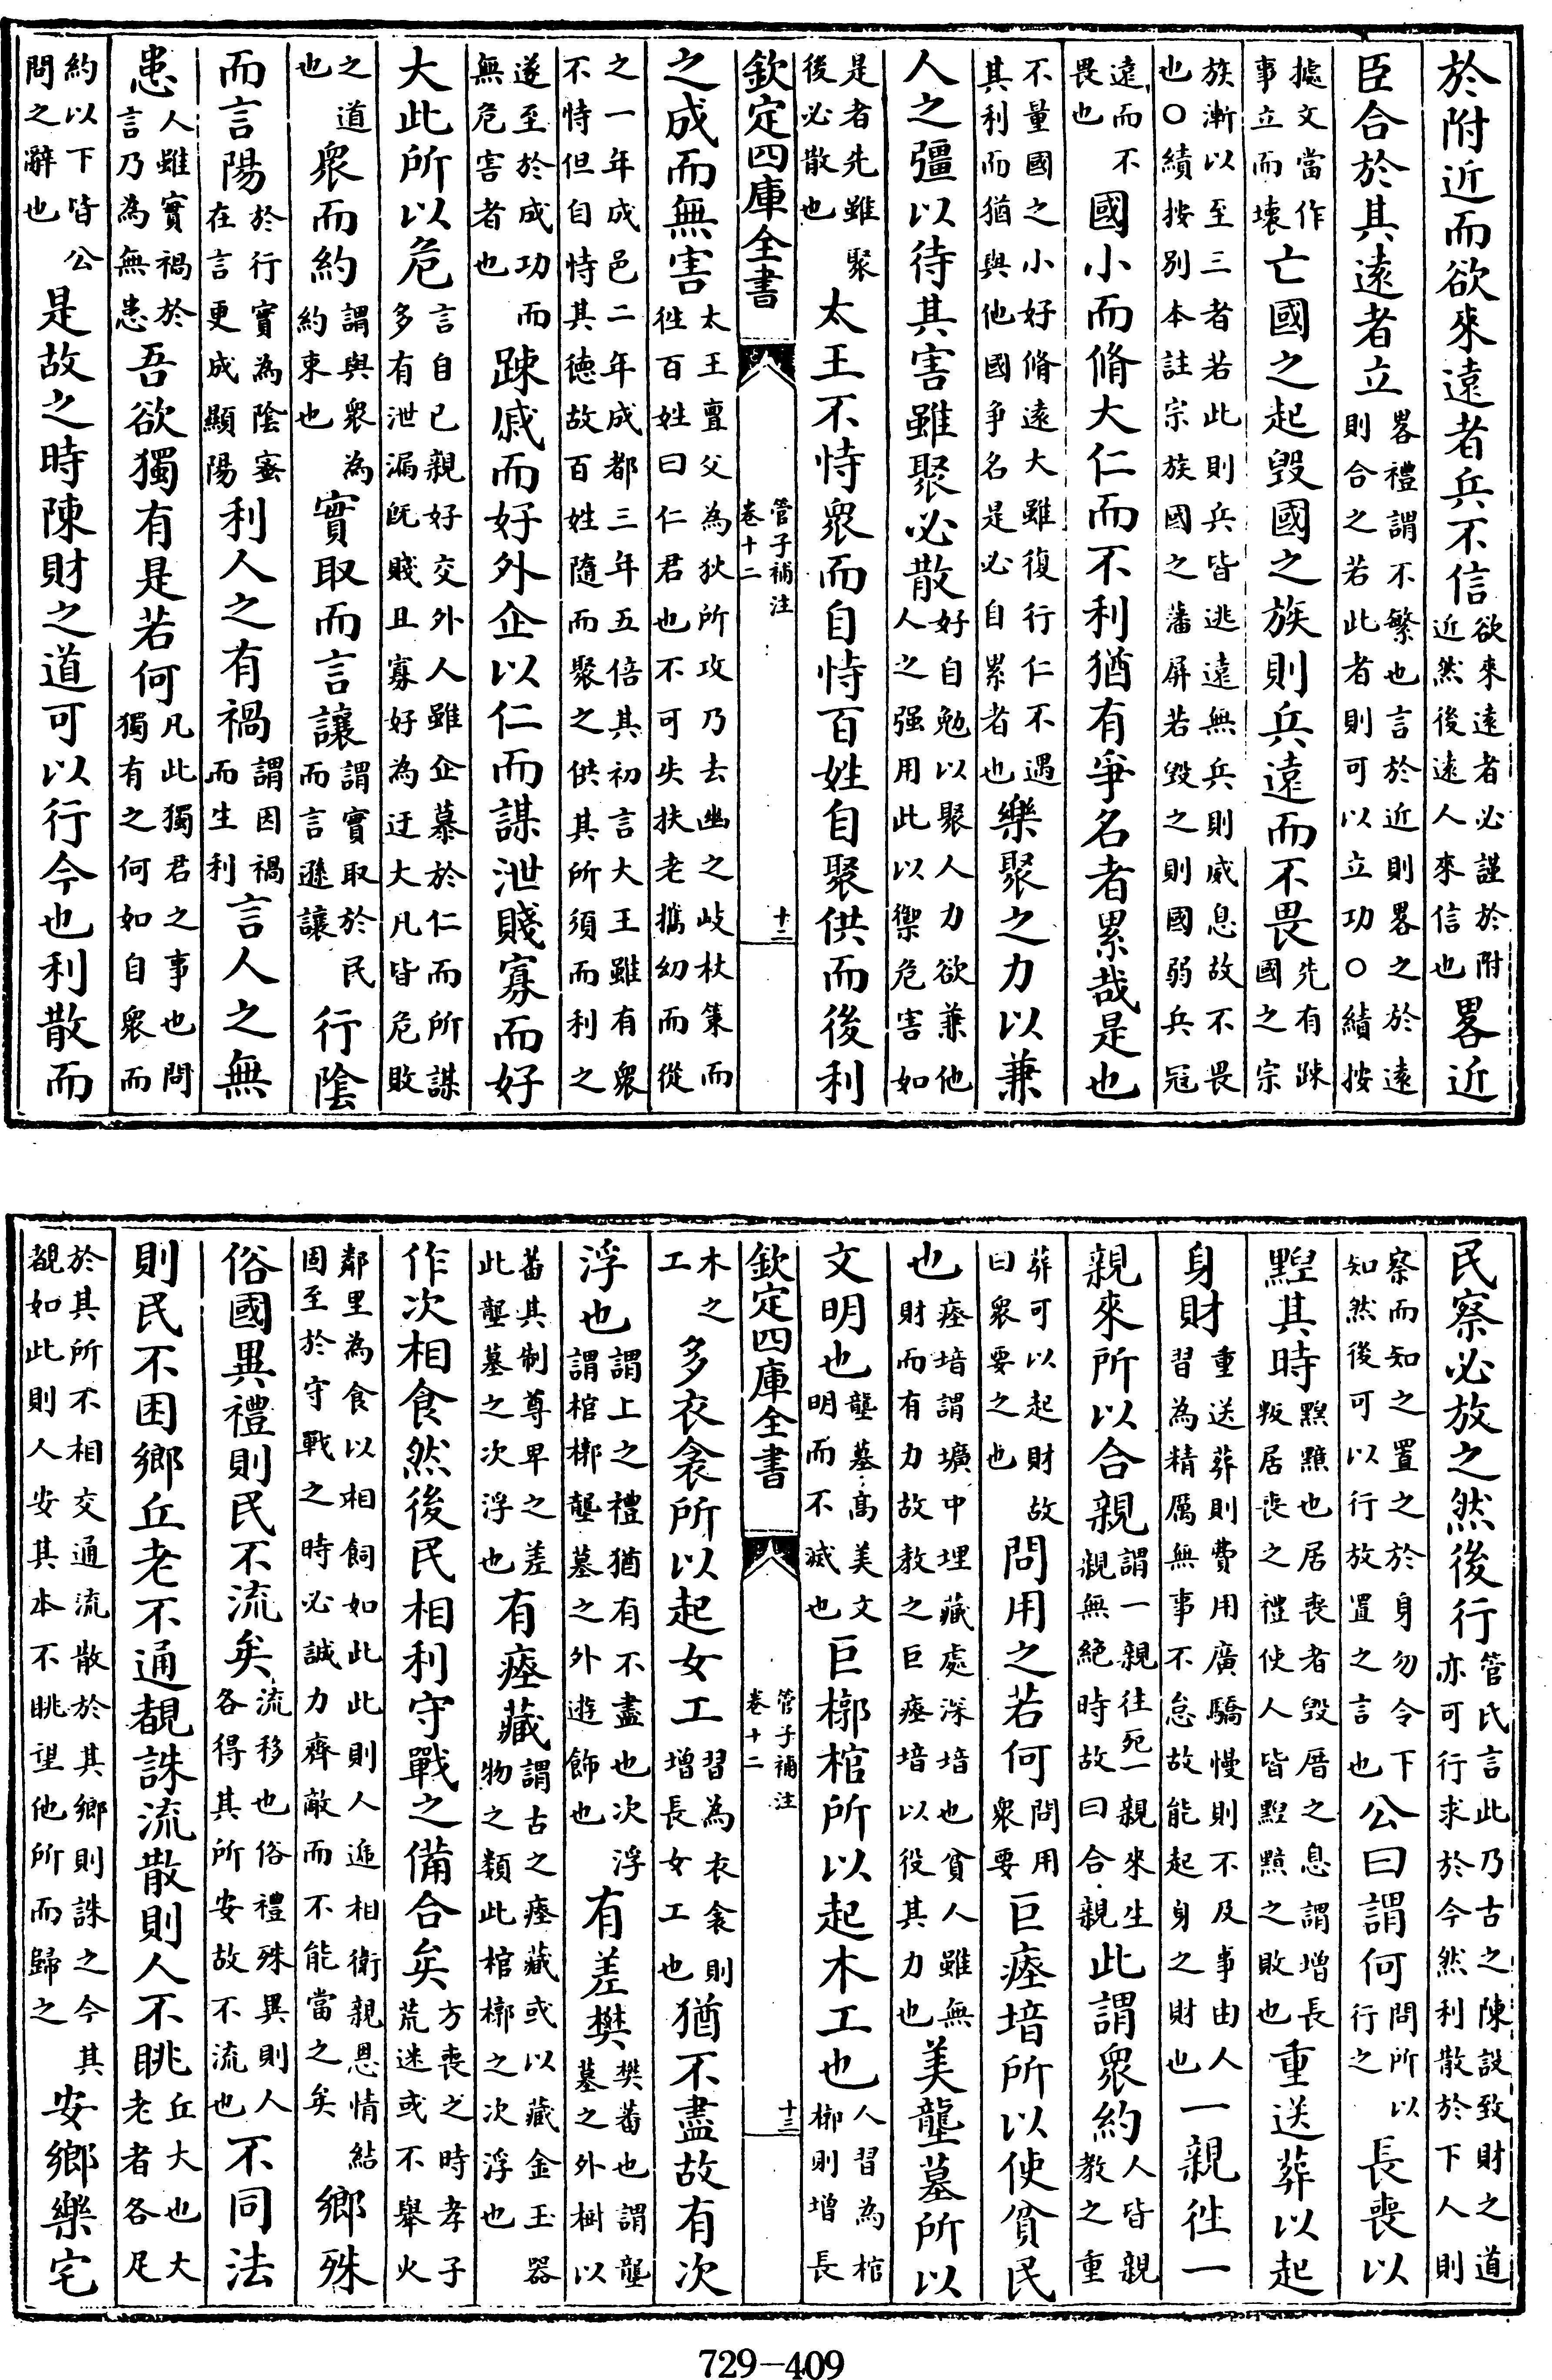 於附近而欲來遠者兵不信欲來遠者必謹於附近然後遠人來信也畧近
臣合於其遠者立畧禮謂不繁也言於近則畧之於遠則合之若此者則可以立功○績按
據文當作事立而壞亡國之起毀國之族則兵遠而不畏先有踈國之宗
族漸以至三者若此則兵皆逃遠無兵則威息故不畏也○績按別本註宗族國之藩屏若毀之則國弱兵冦
遠而不畏也國小而脩大仁而不利猶有爭名者累哉是也
不量國之小好脩遠大雖復行仁不遇其利而猶與他國争名是必自累者也樂聚之力以兼
人之彊以待其害雖聚必散好自勉以聚人力欲兼他人之强用此以禦危害如
是者先雖聚後必散也太王不恃衆而自恃百姓自聚供而後利
欽定四庫全書 管子補注 卷十二 十二
之成而無害太王亶父為狄所攻乃去幽之岐杖策而徃百姓曰仁君也不可失扶老攜幼而從
之一年成邑二年成都三年五倍其初言大王雖有衆不恃但自恃其德故百姓隨而聚之供其所須而利之
遂至於成功而無危害者也踈戚而好外企以仁而謀泄賤寡而好
大此所以危言自已親好交外人雖企慕於仁而所謀多有泄漏旣賤且寡好為迂大凡皆危敗
之道也衆而約謂與衆為約束也實取而言讓謂實取於民而言遜讓行陰
而言陽於行實為陰蜜在言更成顯陽利人之有禍謂因禍而生利言人之無
患人雖實禍於言乃為無患吾欲獨有是若何凡此獨君之事也問獨有之何如自衆而
約以下皆公問之辭也是故之時陳財之道可以行今也利散而
民察必放之然後行管氏言此乃古之陳設致財之道亦可行求於今然利散於下人則
察而知之置之於身勿令下知然後可以行放置之言也公曰謂何問所以行之長喪以
黳其時黳黰也居喪者毀厝之息謂增長叛居喪之禮使人皆黳黰之敗也重送葬以起
身財重送葬則費用廣驕慢則不及事由人習為精厲無事不怠故能起身之財也一親徃一
親來所以合親謂一親往死一親來生親無絕時故曰合親此謂衆約人皆親教之重
葬可以起財故曰衆要之也問用之若何問用衆要巨瘞堷所以使貧民
也瘞堷謂壙中埋藏處深堷也貧人雖無財而有力故教之巨瘞堷以役其力也美壟墓所以
文明也壟墓高美文明而不滅也巨槨棺所以起木工也人習為棺槨則增長
欽定四庫全書 管子補注 卷十二 十三
木之工多衣衾所以起女工習為衣衾則增長女工也猶不盡故有次
浮也謂上之禮猶有不盡也次浮謂棺槨壟墓之外遊飾也有差樊樊蕃也謂壟墓之外樹以
蕃其制尊卑之差此壟墓之次浮也有瘞藏謂古之瘞藏或以藏金玉器物之類此棺槨之次浮也
作次相食然後民相利守戰之備合矣方喪之時孝子荒迷或不舉火
鄰里為食以相飼如此此則人遞相衛親恩情結固至於守戰之時必誠力齊敵而不能當之矣鄉殊
俗國異禮則民不流矣流移也俗禮殊異則人各得其所安故不流也不同法
則民不困鄉丘老不通覩誅流散則人不眺丘大也大老者各足
於其所不相交通流散於其鄉則誅之今其覩如此則人安其本不眺望他所而歸之安鄉樂宅
729—409